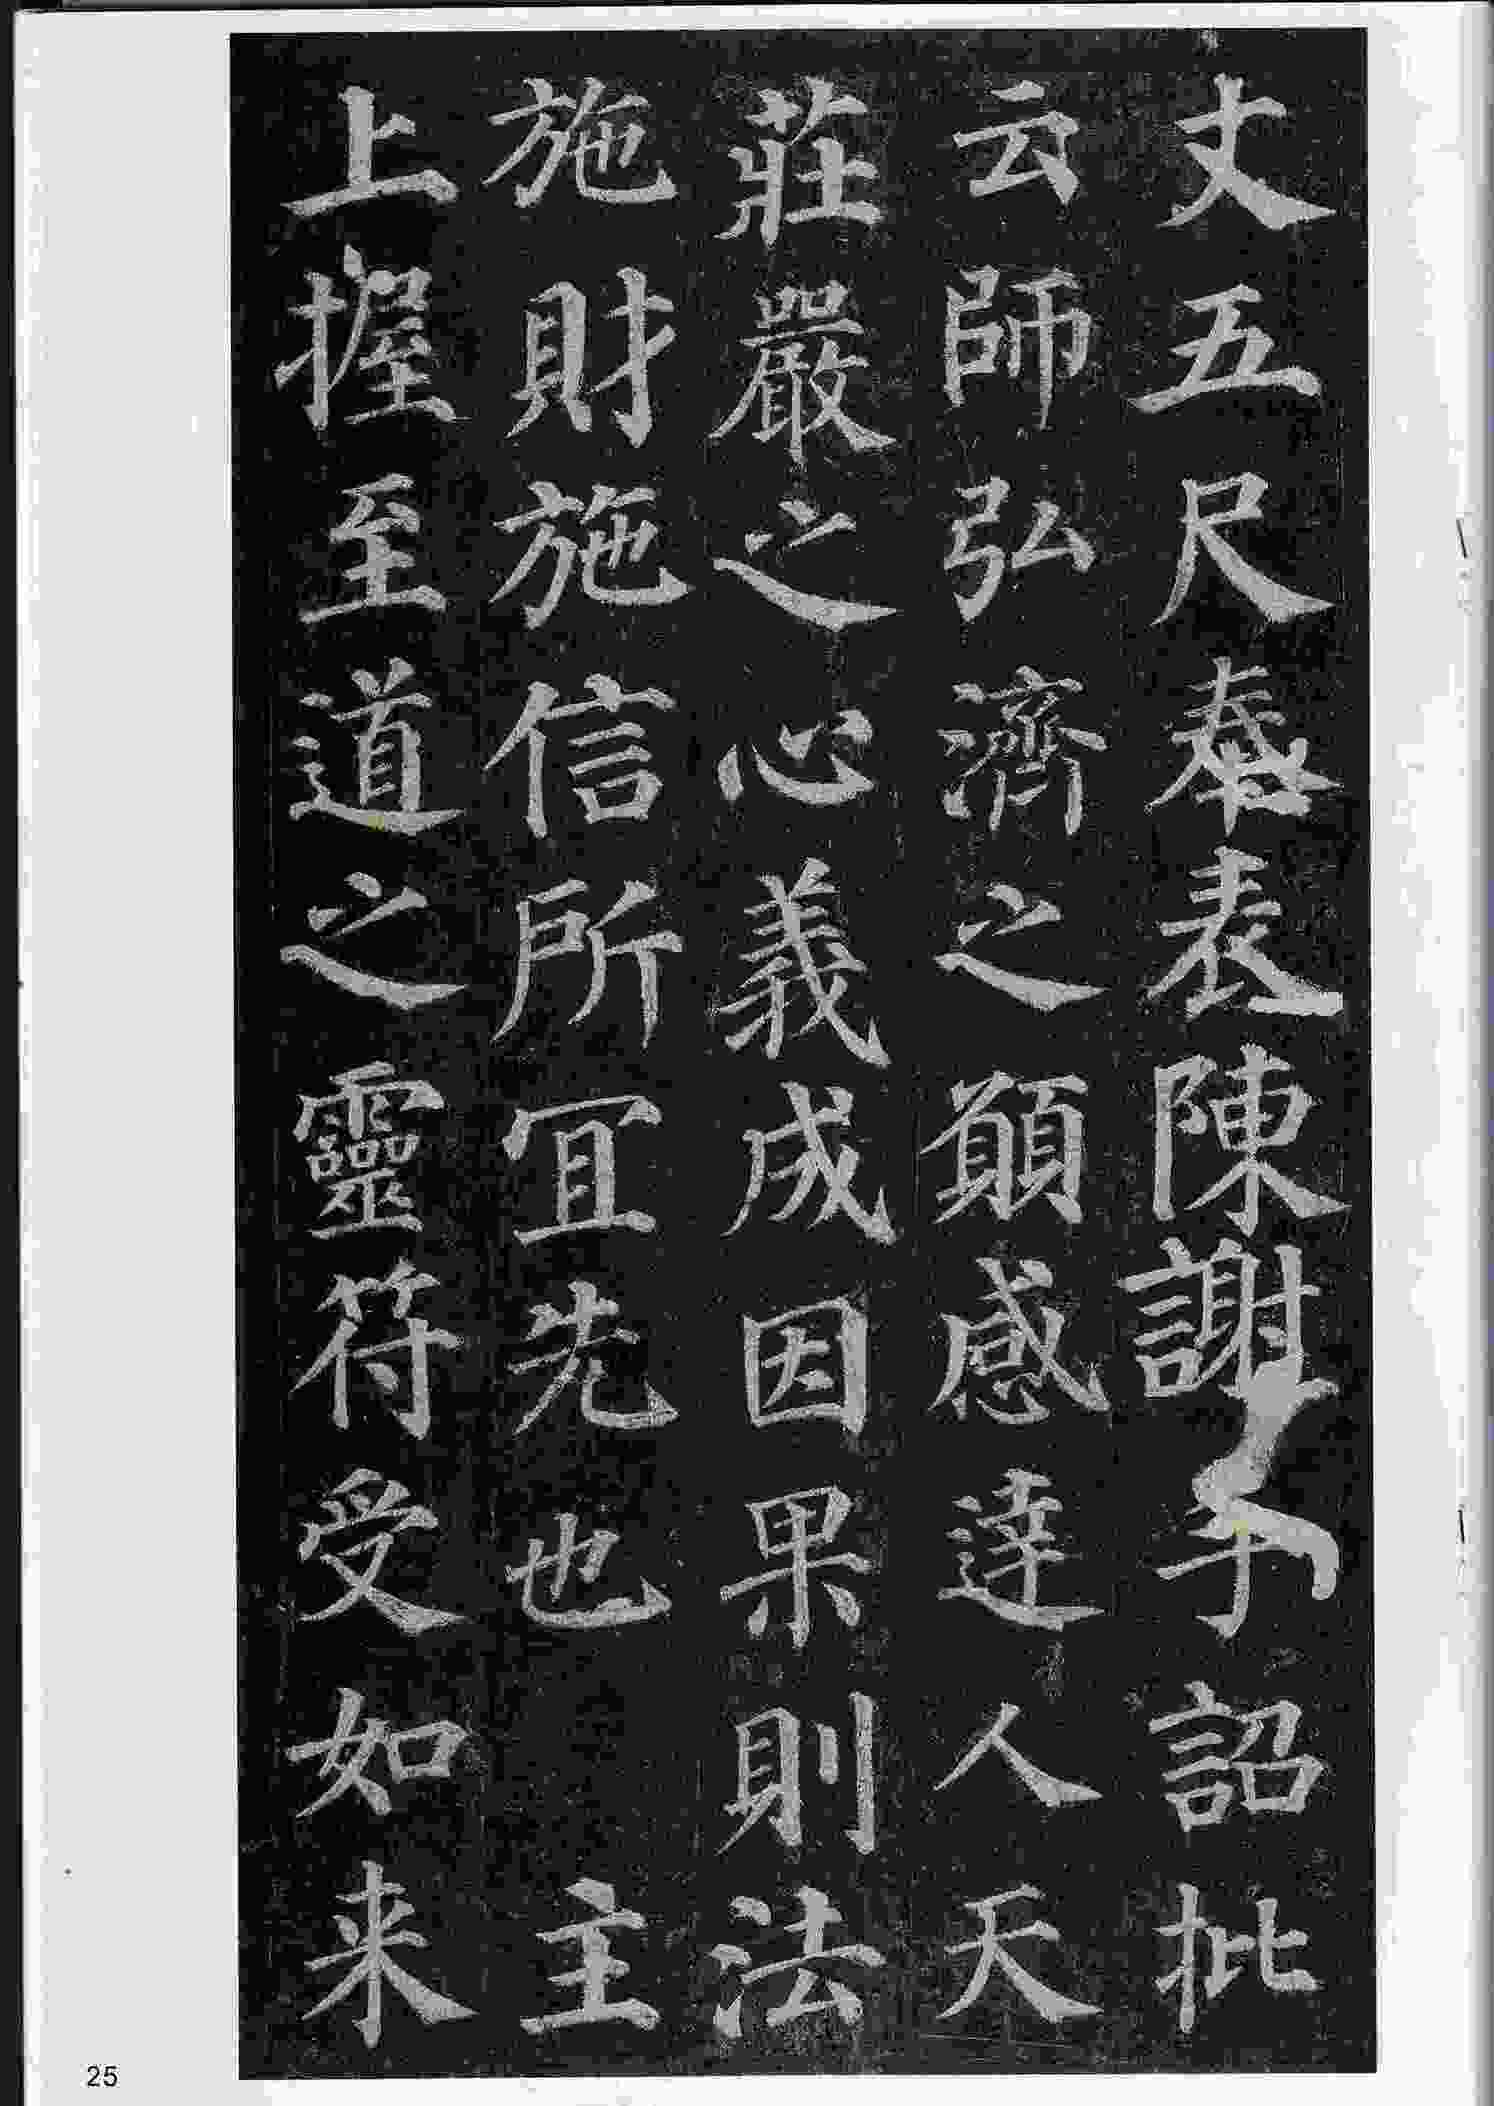 丈五尺奉表陳謝手詔批
云師弘濟之願感達人天
莊嚴之心義成因果則法
施財施信所宜先也 主
上握至道之靈符受如来
25